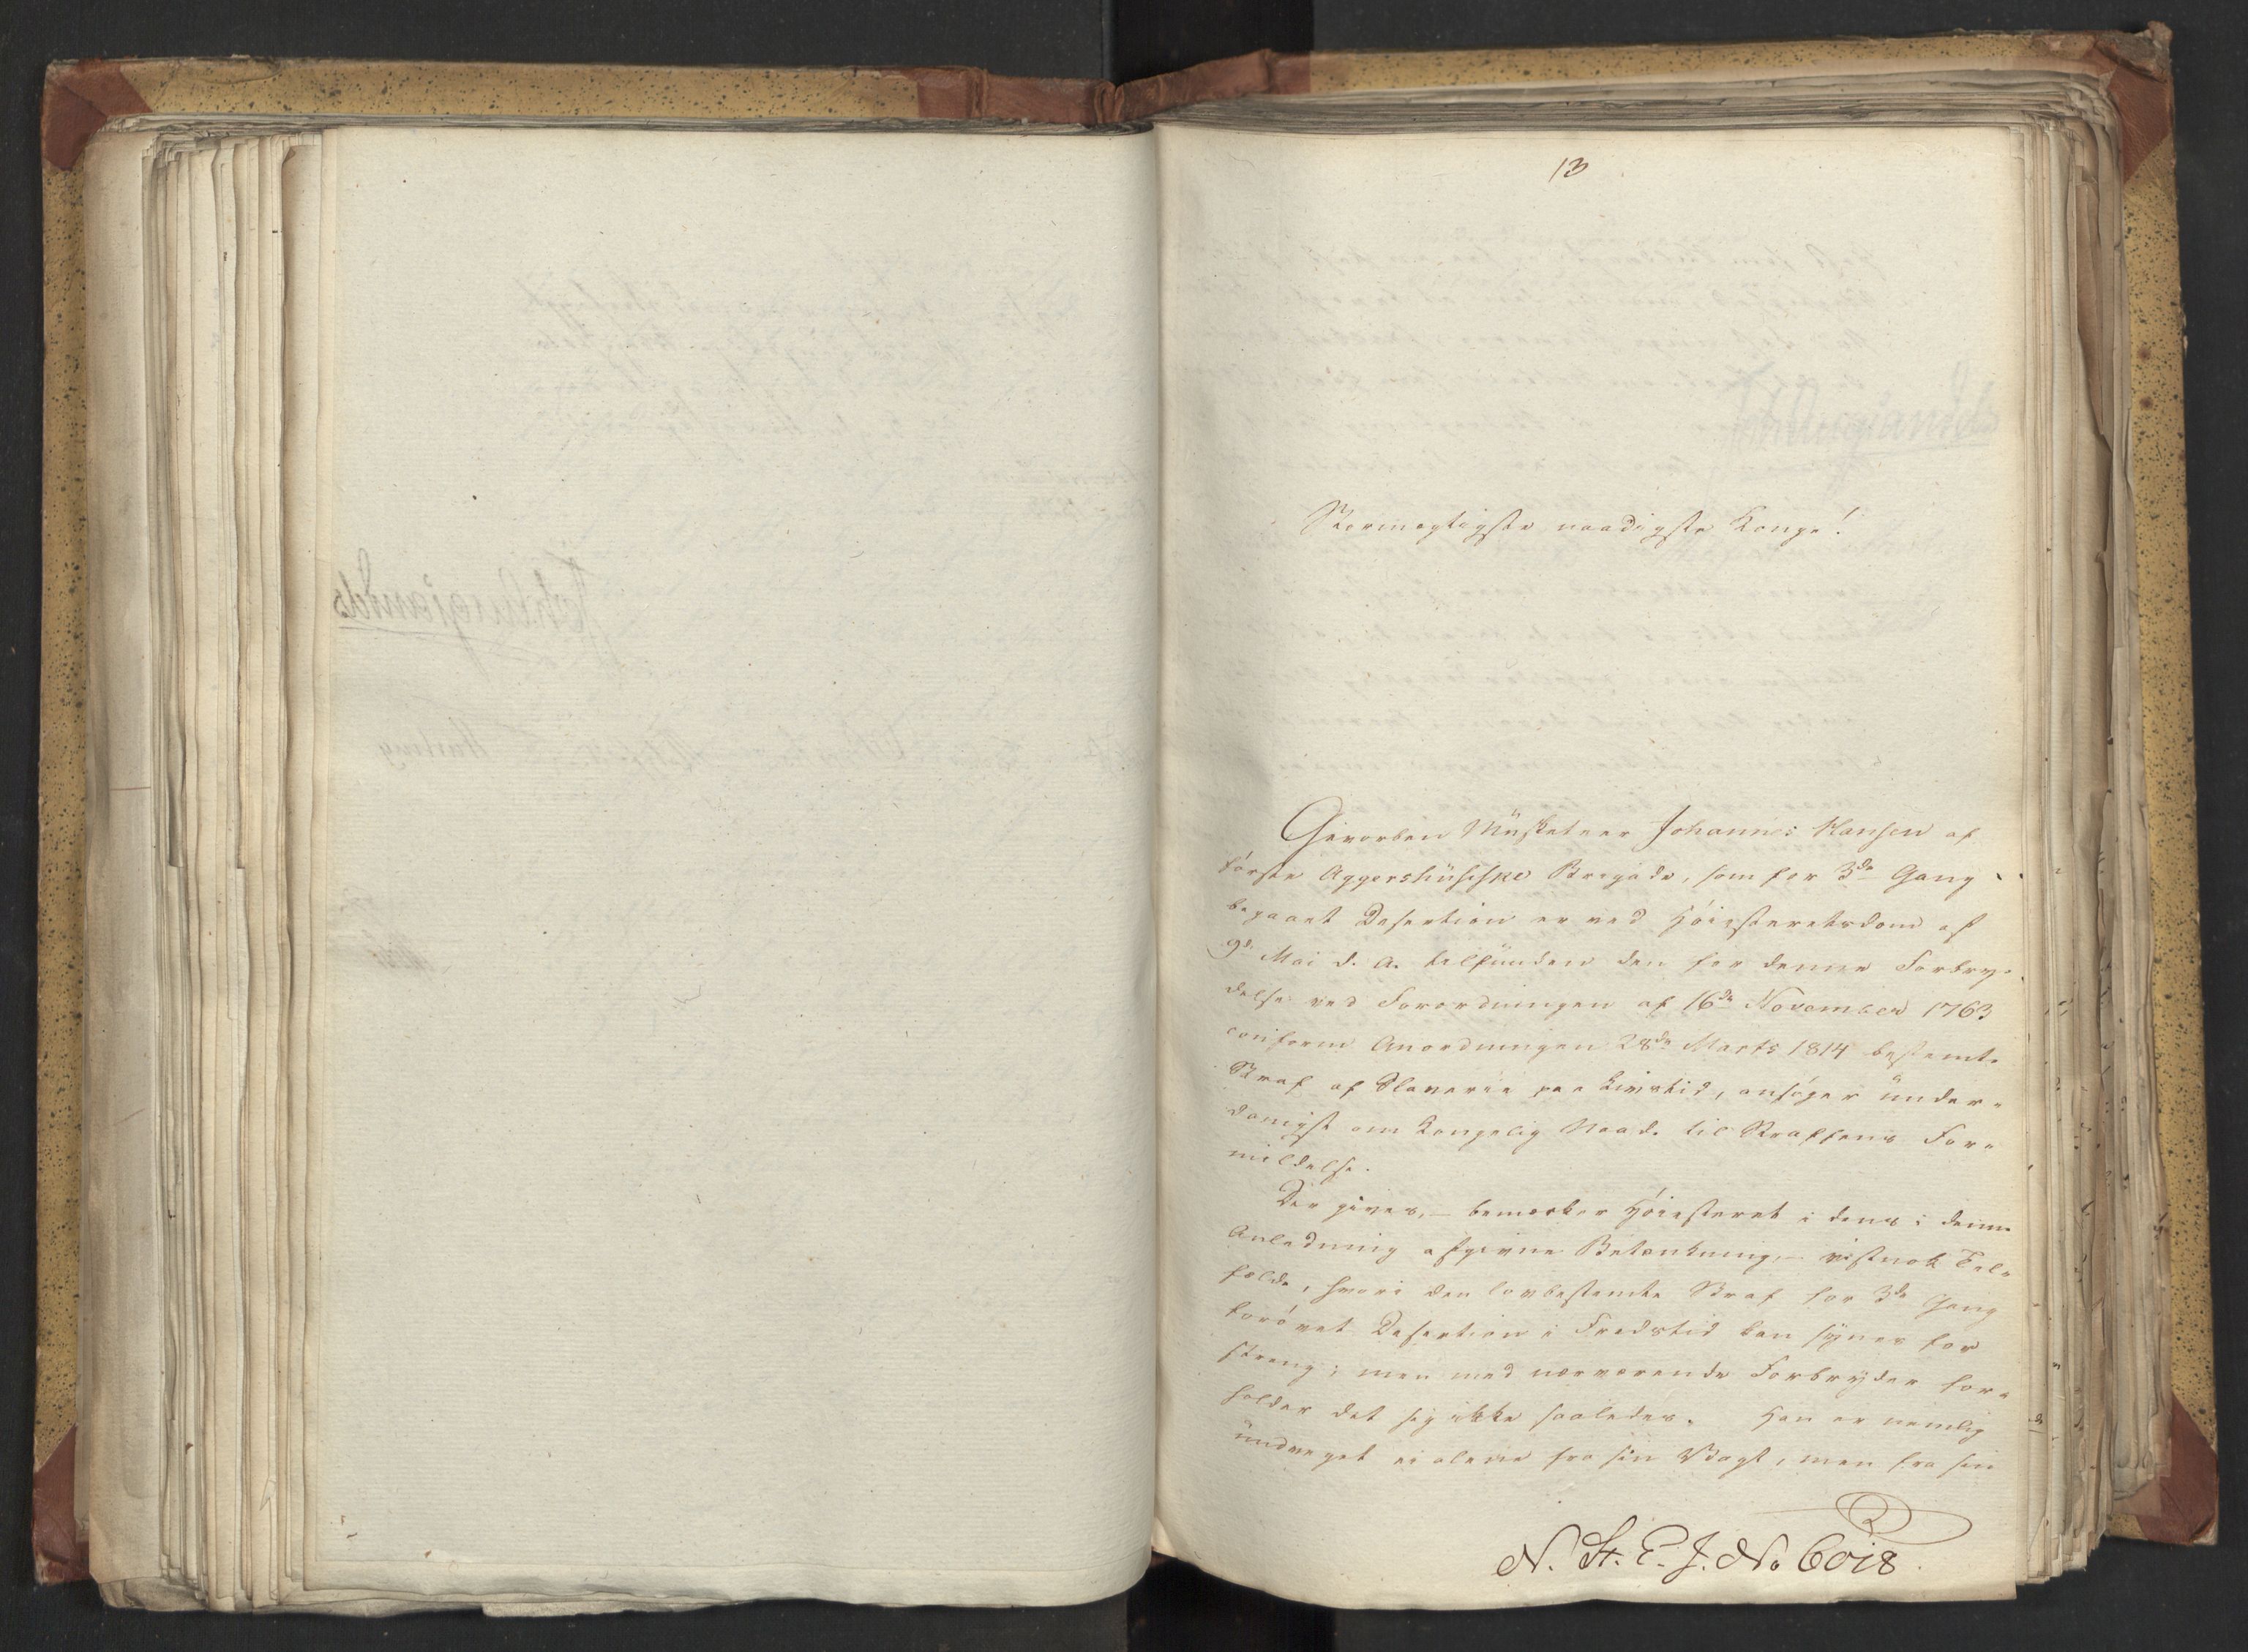 13
Stormægtigste naadigste Konge!
Gevorben Musketeer Johannes Hansen af
første Aggershusiske Brigade, som for 3de Gang
begaaet Desertion er ved Høiesteretsdom af
9de Mai d. A. tilfunden den for denne Forbry-
delse ved Forordningen af 16de November 1763
conform Anordningen 28de Marts 1814 bestemte
Straf af Slaverie paa Livstid, ansøger under-
danigst om Kongelig Naade til Straffens For-
mildelse.
Der gives, – bemærker Høiesteret i dens i denne
Anledning afgivne Betænkning, – vistnok Til-
fælde, hvori den lovbestemte Straf for 3de Gang
forøvet Desertion i Fredstid kan synes for
streng; men med nærværende Forbryder for-
holder det sig ikke saaledes. Han er nemlig
undveget ei alene fra sin Vagt, men fra sin
N. St. E. J. No 6018.